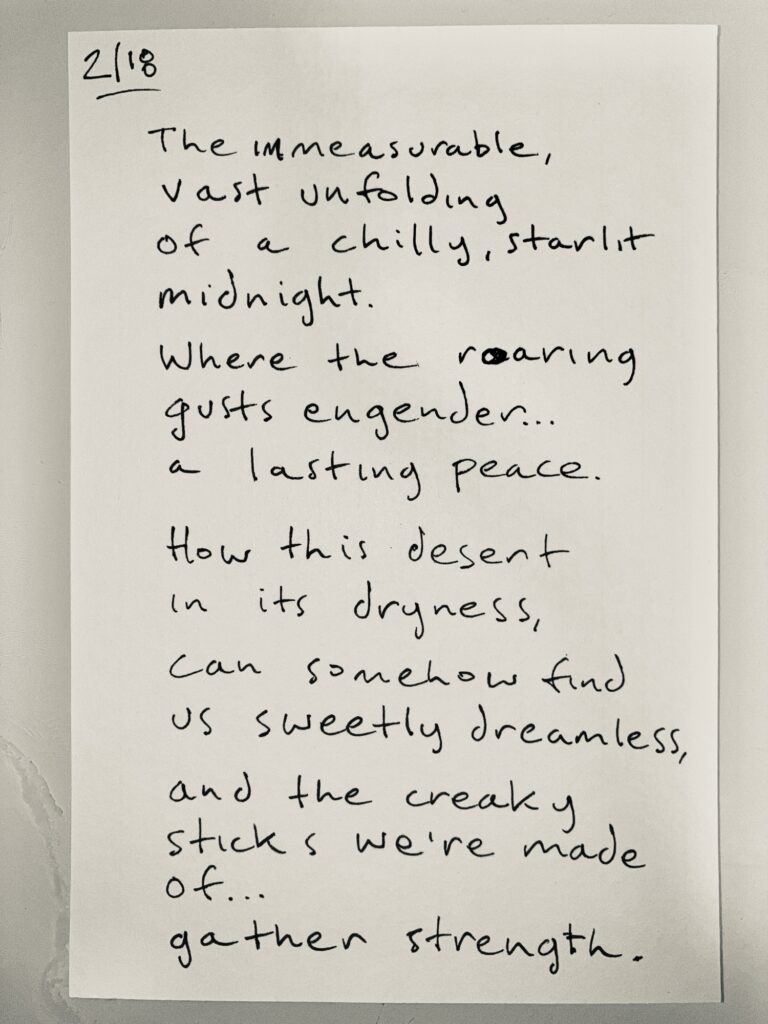 2/18
The immeasurable,
vast unfolding
of a chilly, starlit
midnight.
Where the roaring
gusts engender...
a lasting peace.
How this desert
in its dryness,
can somehow find
us sweetly dreamless,
and the creaky
sticks we're made
of...
gather strength.